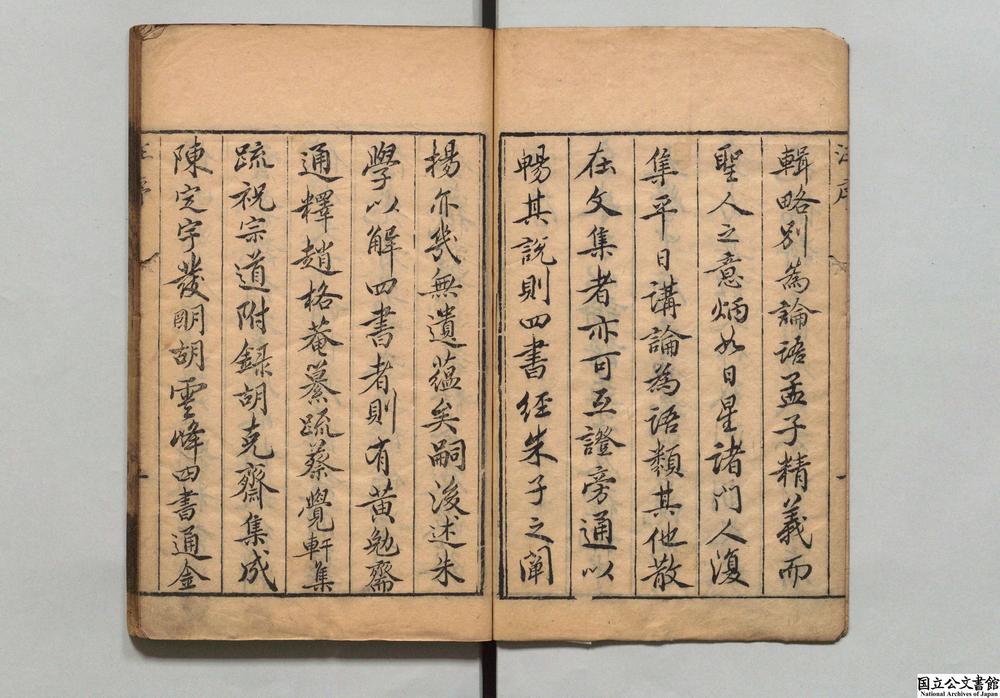 輯略別為論語孟子精義而
聖人之意炳如日星諸門人復
集平日講論為語類其他散
在文集者亦可互證旁通以
暢其說則四書經朱子之闡
揚亦幾無遺蘊矣嗣後述朱
學以解四書者則有黃勉齋
通釋趙格菴纂疏蔡覺軒集
疏祝宗道附錄胡克齋集成
陳定宇發明胡雲峰四書通金
国立公文書館
National Archives of Japan